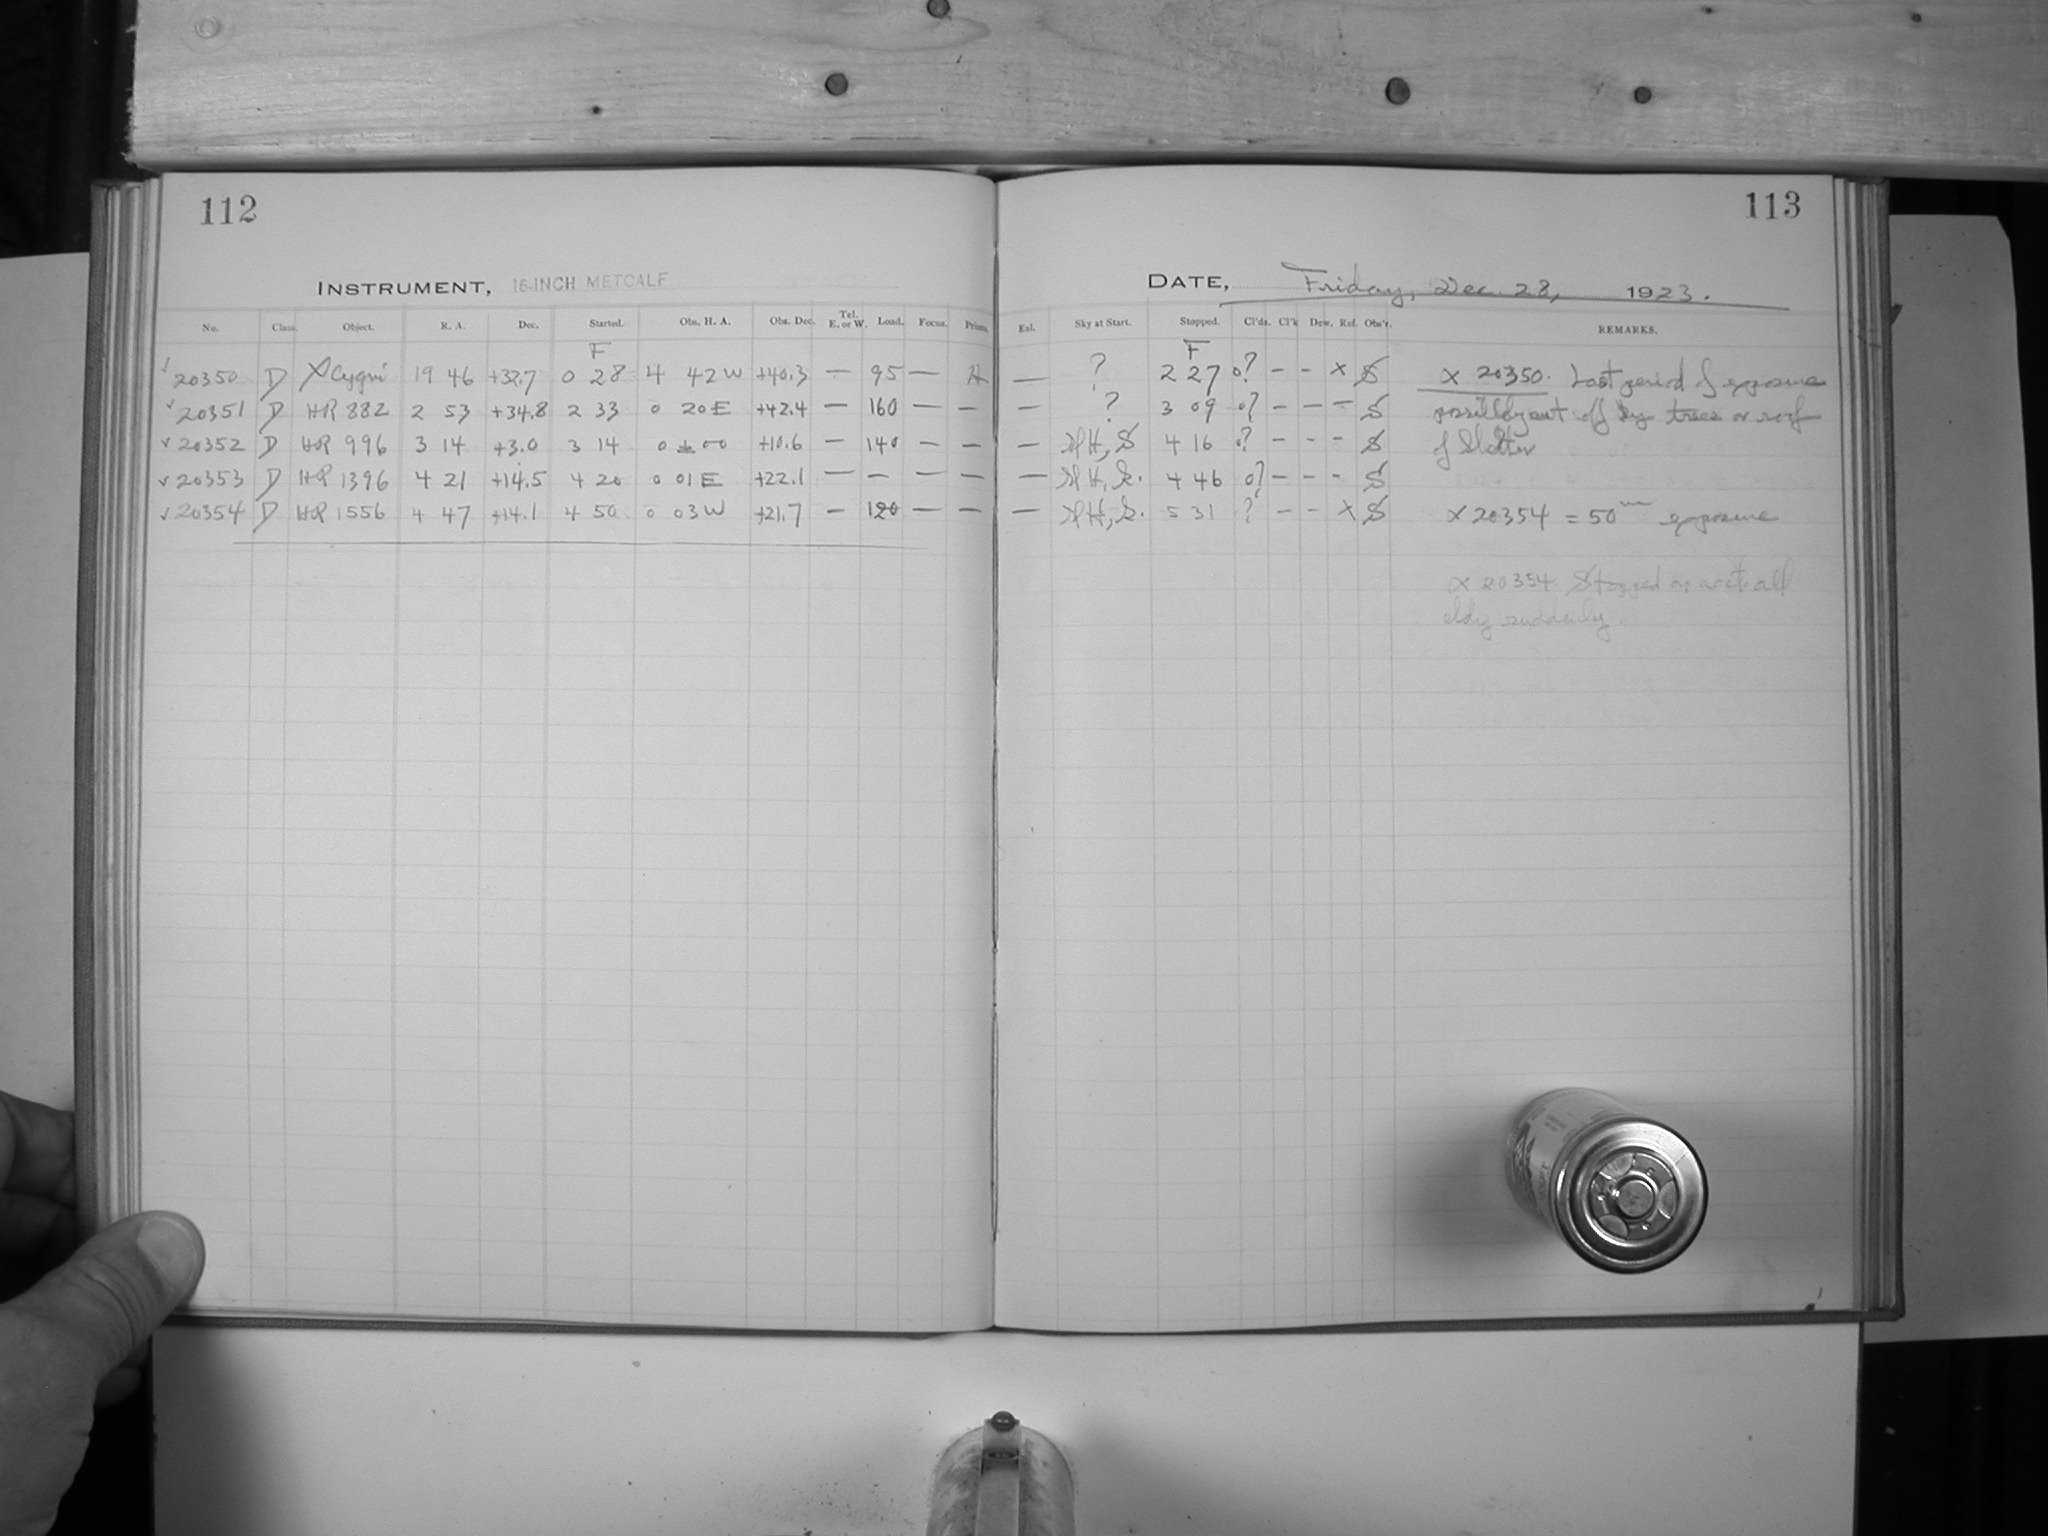 112
113
INSTRUMENT, 16-INCH METCALF
DATE, Friday, Dec. 28, 1923.
No. Class. Object. R. A. Dec. Started. Obs. H. A. Obs. Dec. Tel. E. or W. Load. Focus. Prism. Sky at Start. Stopped. Cl'ds. Cl'k Dew. Ref. Obs'r. REMARKS.
F F
√ 20350 D X Cygni 19 46 +32.7 0 28 4 42 W +40.3 — 95 — — ? 2 27 0? - - x S x 20350. Last period of exposure
√ 20351 D HR 882 2 53 +34.8 2 33 0 20 E +42.4 — 160 — — — ? 3 09 0? - - - S possibly cut off by trees or roof
√ 20352 D HR 996 3 14 +3.0 3 14 0 ± 00 +10.6 — 140 — — — 4 16 0? - - - S of
√ 20353 D HR 1396 4 21 +14.5 4 20 0 01 E +22.1 — — — — — 4 46 0? - - - S
√ 20354 D HR 1556 4 47 +14.1 4 50 0 03 W +21.7 — 120 — — — 5 31 ? - - x S x 20354 = 50m exposure
x 20354. Stopped
suddenly.